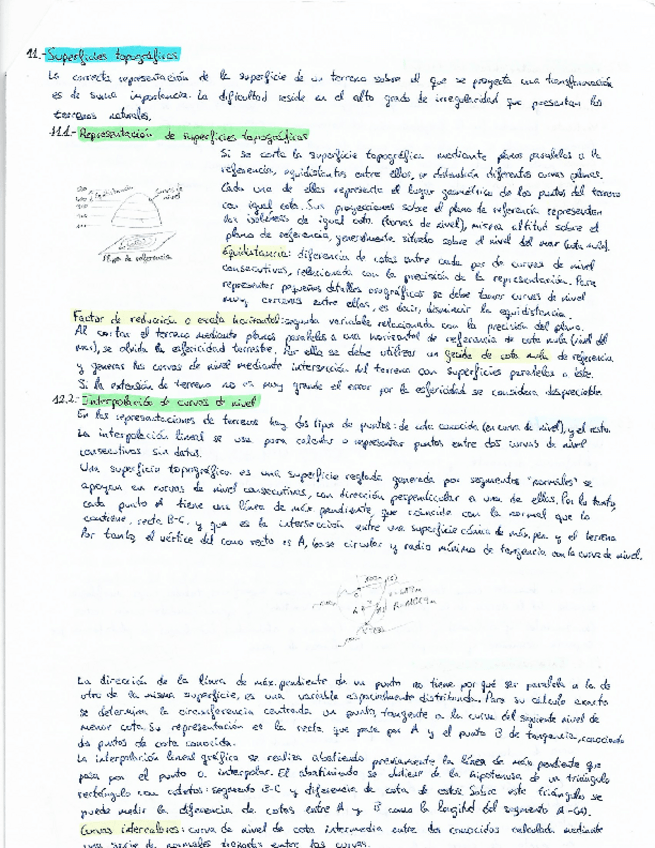 11.- Superficies topográficas
La correcta representación de la superficie de un terreno sobre el que se proyecta una transformación
es de suma importancia. La dificultad reside en el alto grado de irregularidad que presentan los
terrenos naturales.
11.1.- Representación de superficies topográficas
Si se corta la superficie topográfica mediante planos paralelos a la
referencia, equidistantes entre ellos, se obtendrán diferentes curvas planas.
Cada una de ellas representa el lugar geométrico de los puntos del terreno
con igual cota. Sus proyecciones sobre el plano de referencia representan
las isolíneas de igual cota (curvas de nivel), misma altitud sobre el
plano de referencia, generalmente situado sobre el nivel del mar (cota nula).
Equidistancia
Curvas de
nivel
Plano de referencia
Equidistancia: diferencia de cotas entre cada par de curvas de nivel
consecutivas, relacionada con la precisión de la representación. Para
representar pequeños detalles orográficos se debe tener curvas de nivel
muy cercanas entre ellas, es decir, disminuir la equidistancia.
Factor de reducción o escala horizontal: segunda variable relacionada con la precisión del plano.
Al cortar el terreno mediante planos paralelos a una horizontal de referencia de cota nula (nivel del
mar), se olvida la esfericidad terrestre. Por ello se debe utilizar un geoide de cota nula de referencia
y generar las curvas de nivel mediante intersección del terreno con superficies paralelas a este.
Si la extensión de terreno no es muy grande el error por la esfericidad se considera despreciable.
12.2.- Interpolación de curvas de nivel
En las representaciones de terrenos hay dos tipos de puntos: de cota conocida (en curva de nivel), y el resto.
La interpolación lineal se usa para calcular o representar puntos entre dos curvas de nivel
consecutivas sin datos.
Una superficie topográfica es una superficie reglada generada por segmentos "normales" se
apoyan en curvas de nivel consecutivas, con dirección perpendicular a una de ellas. Por lo tanto,
cada punto tiene una línea de máx pendiente, que coincide con la normal que lo
contiene, recta B-C, y que es la intersección entre una superficie cónica de máx. pen. y el terreno
Por tanto, el vértice del cono recto es A, base circular y radio mínimo de tangencia con la curva de nivel.
La dirección de la línea de máx. pendiente de un punto no tiene por qué ser paralela a la de
otro de la misma superficie, es una variable espacialmente distribuida. Para su cálculo exacto
se determina la circunferencia centrada un punto, tangente a la curva del siguiente nivel de
menor cota. Su representación es la recta que pasa por A y el punto B de tangencia, conociendo
dos puntos de cota conocida.
La interpolación lineal gráfica se realiza abatiendo previamente la línea de máx pendiente que
pasa por el punto a interpolar. El abatimiento se deduce de la hipotenusa de un triángulo
rectángulo con catetos: segmento B-C y diferencia de cota de estos. Sobre este triángulo se
puede medir la diferencia de cotas entre A y B como la longitud del segmento A-(A).
Curvas intercalares: curva de nivel de cota intermedia entre dos conocidas calculada mediante
una serie de normales trazadas entre las curvas.